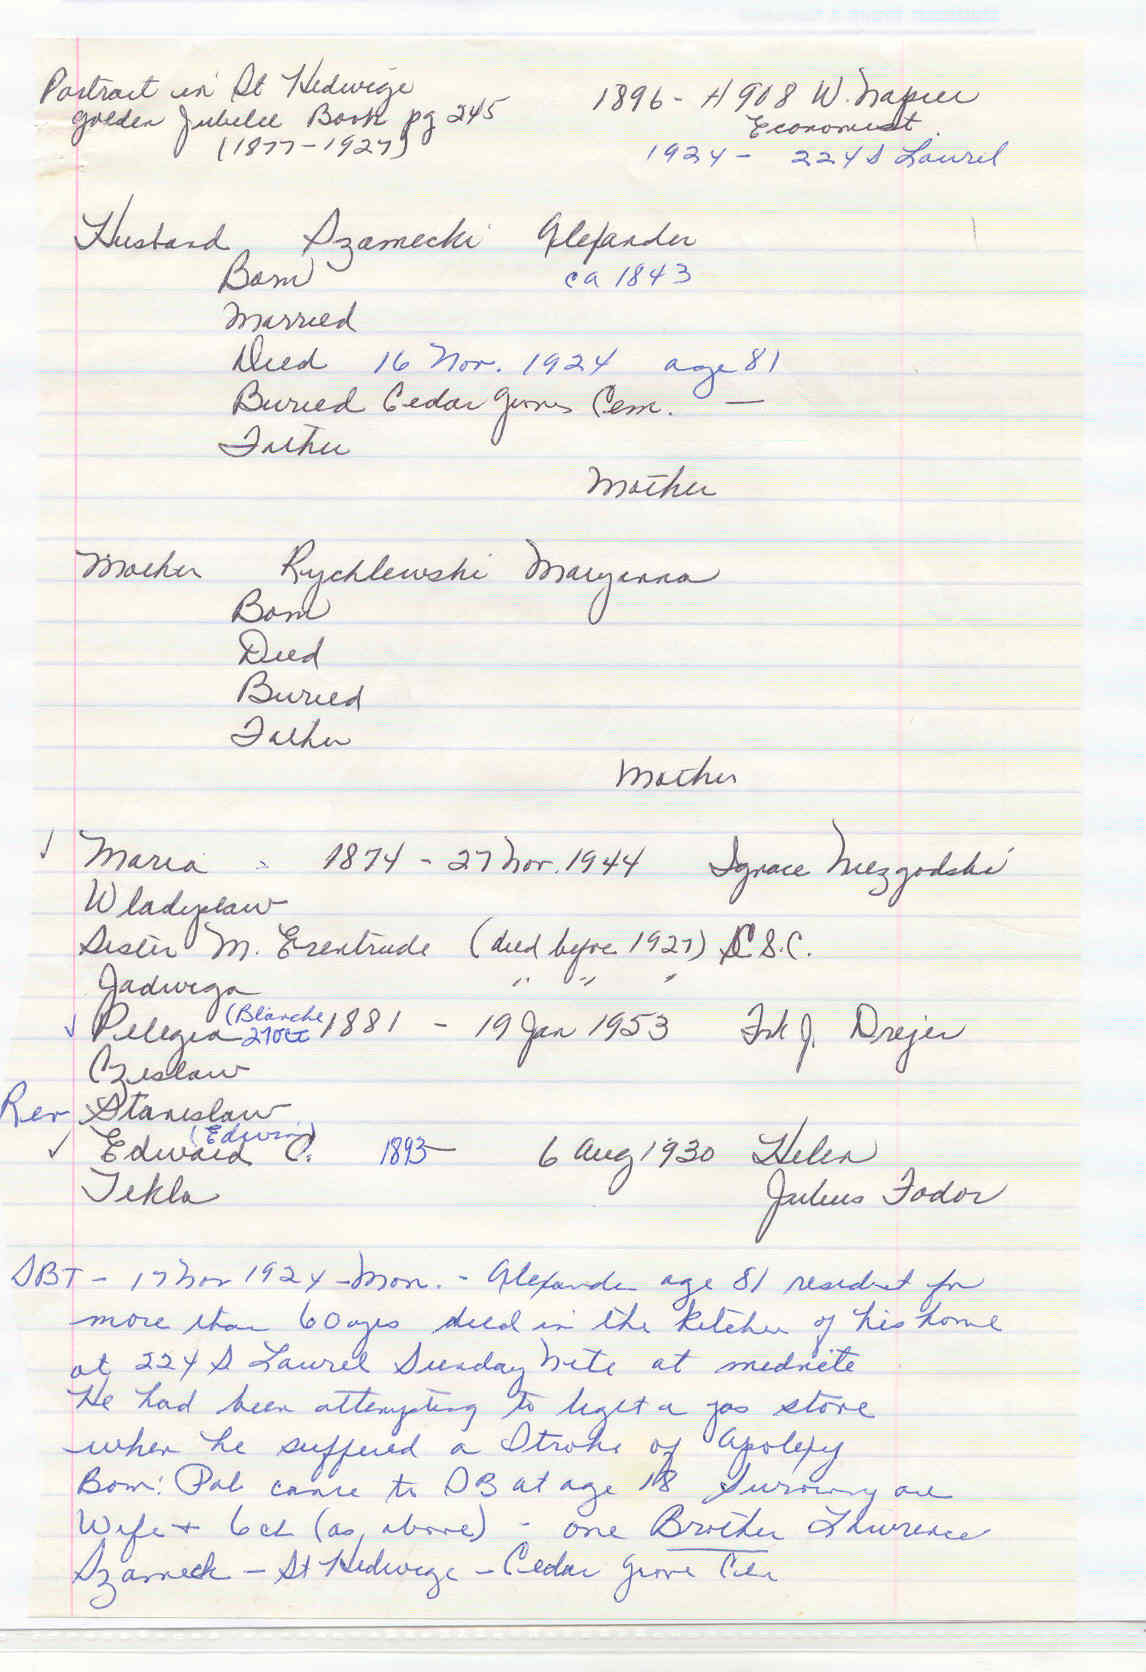 Portrait in St Hedwige
Golden Jubilee Book pg 245
(1877-1927)
1896 - H 908 W. Napier
Economist.
1924 - 224 S Laurel
Husband Szamecki Alexander
Born ca 1843
Married
Died 16 Nov. 1924 age 81
Buried Cedar Grove Cem. —
Father
Mother
Mother Rychlewski Maryanna
Born
Died
Buried
Father
Mother
✓ Maria 1874 - 27 Nov. 1944 Ignace Niezgodski
Wladyslaw
Sister M. Erentrude (died before 1927) C.S.C.
Jadwiga " " "
✓ Pelegia (Blanche 27 Oct 1881 - 19 Jan 1953 Frk J. Drejer
Czeslaw
Rev Stanislaw
(Edwin)
✓ Edward C. 1893 - 6 Aug 1930 Helen
Tekla Julius Fodor
SBT - 17 Nov 1924 - Mon. - Alexander age 81 resident for
more than 60 yrs died in the kitchen of his home
at 224 S Laurel Sunday Nite at midnite
He had been attempting to light a gas stove
when he suffered a Stroke of Apolexy
Born: Pol came to SB at age 18 Surviving are
Wife + 6 ch (as above) - one Brother Lawrence
Szameck - St Hedwige - Cedar Grove Cem